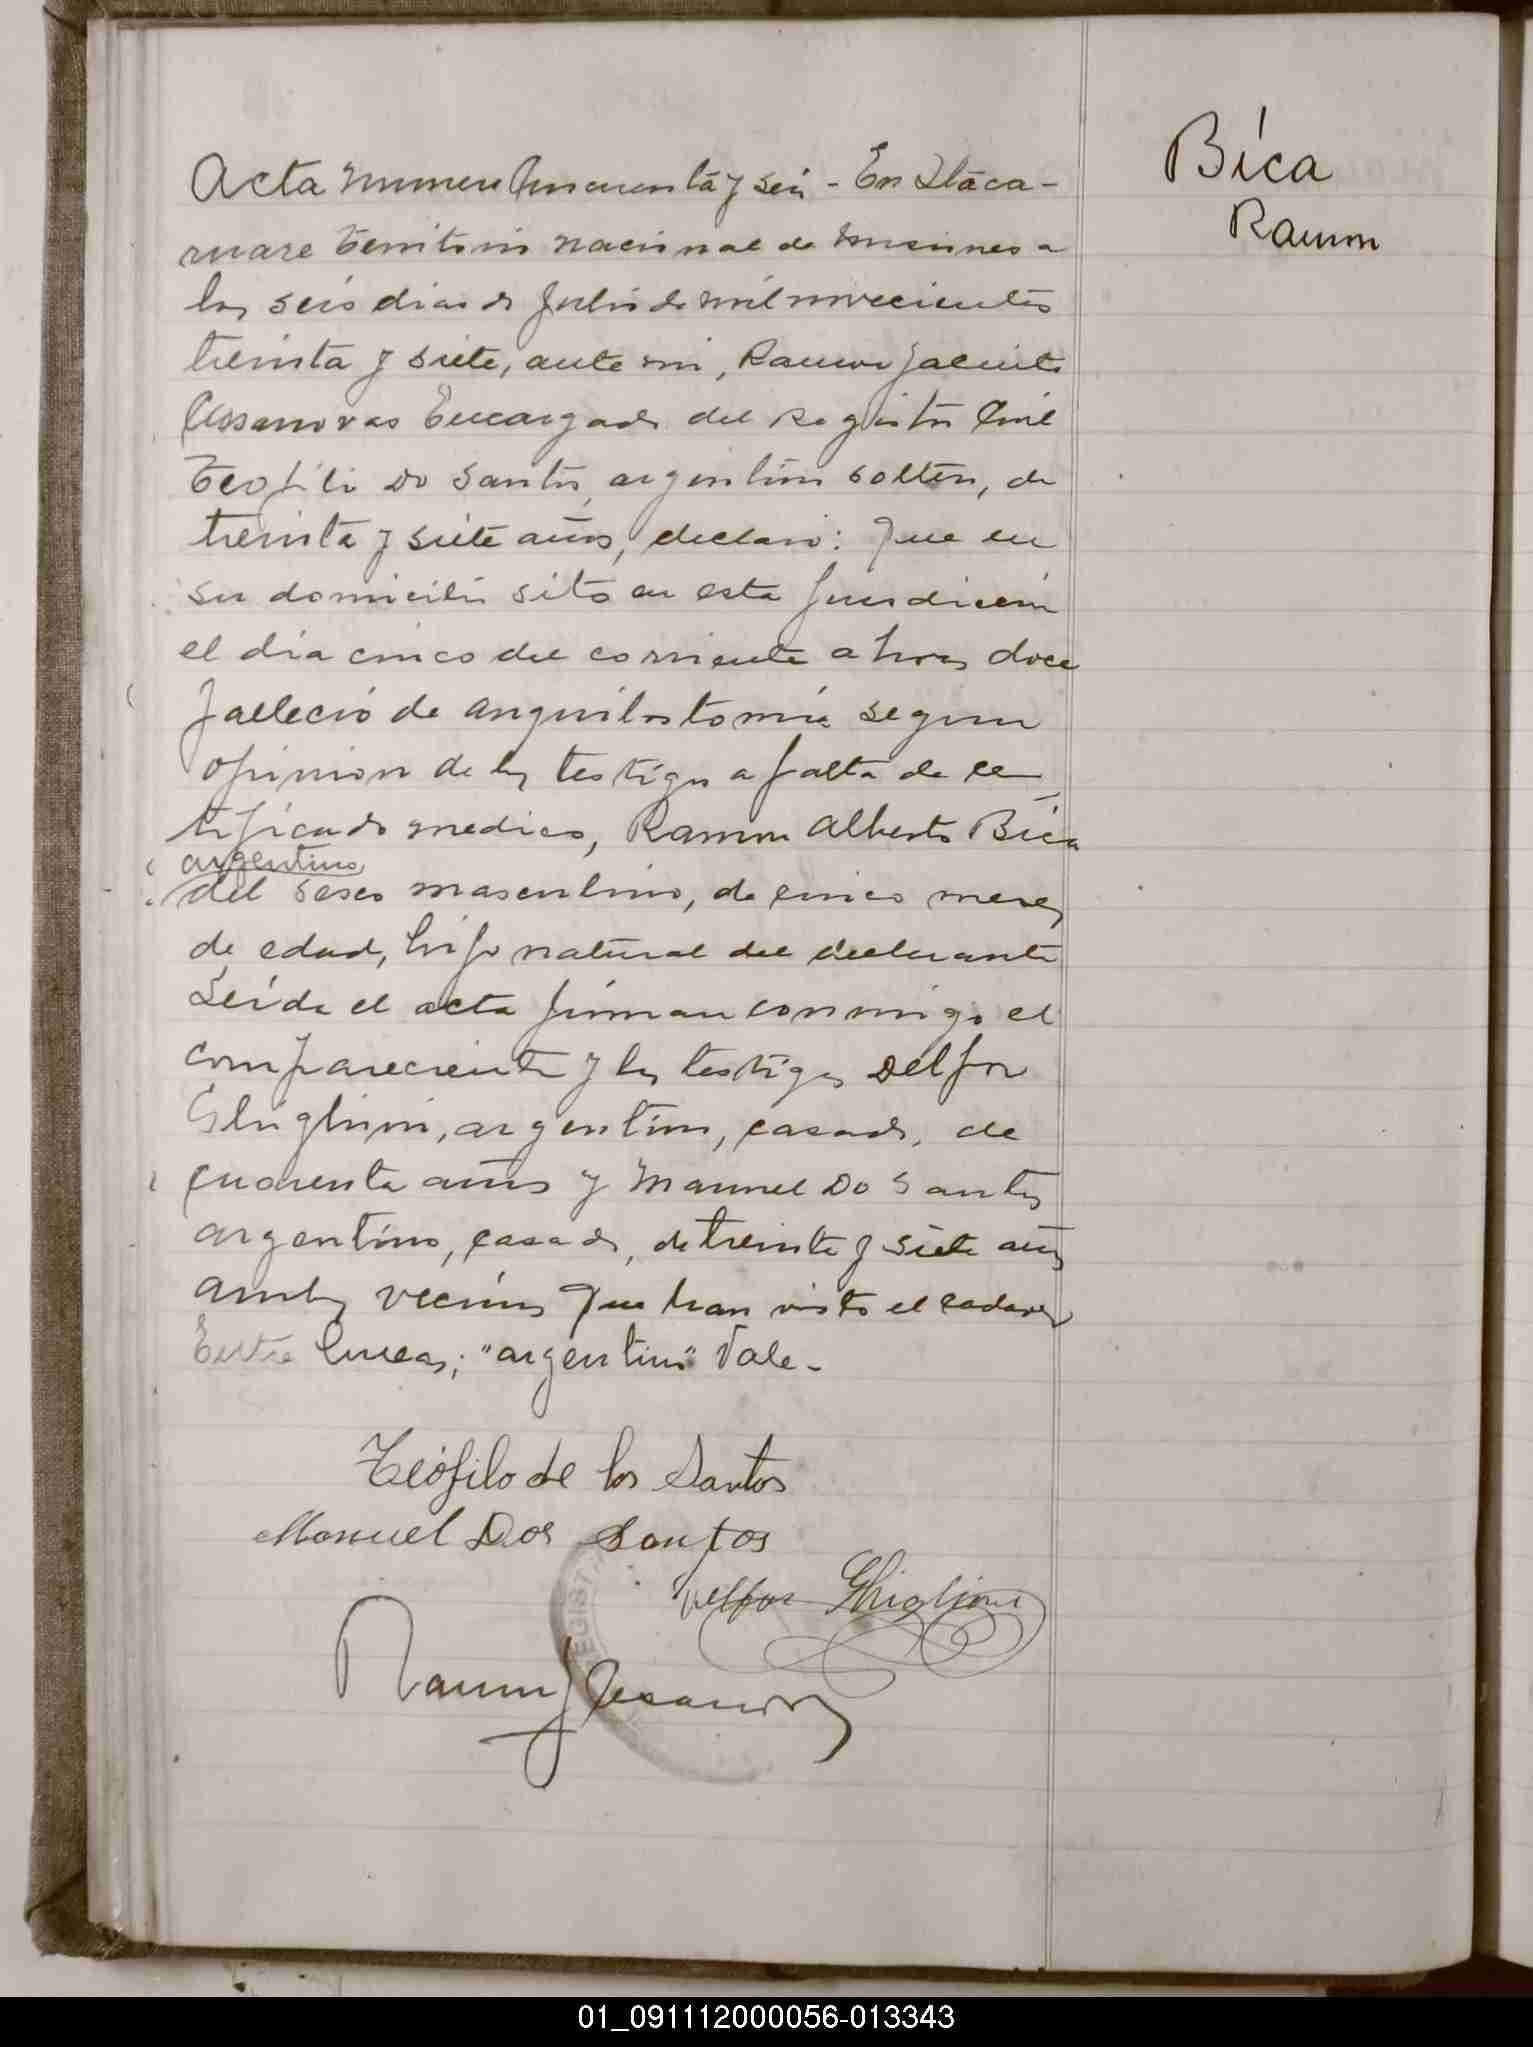 Bica
Ramon
Acta numero Cincuenta y seis - En Itaca-
ruare territorio nacional de Misiones a
los seis dias de Julio de mil novecientos
treinta y siete, ante mi, Ramon Jacinto
Casanovas Encargado del Registro Civil
Teofilo Do Santos, argentino soltero, de
treinta y siete años, declaro: Que en
su domicilio sito en esta Jurisdiccion
el dia cinco del corriente a horas doce
falleció de anquilostomia segun
opinion de los testigos a falta de cer
tificado medico, Ramon Alberto Bica
argentino
del sexo masculino, de cinco meses
de edad, hijo natural del declarante
Leida el acta firman conmigo el
compareciente y los testigos Delfor
Ghiglioni, argentino, casado, de
cuarenta años y Manuel Do Santos
argentino, casado, de treinta y siete años
ambos vecinos que han visto el cadaver
Entre lineas; "argentino" Vale -
Teófilo de los Santos
Manuel Dos Santos
Delfor Ghiglioni
Ramon J Casanovas
REGIST
01_091112000056-013343